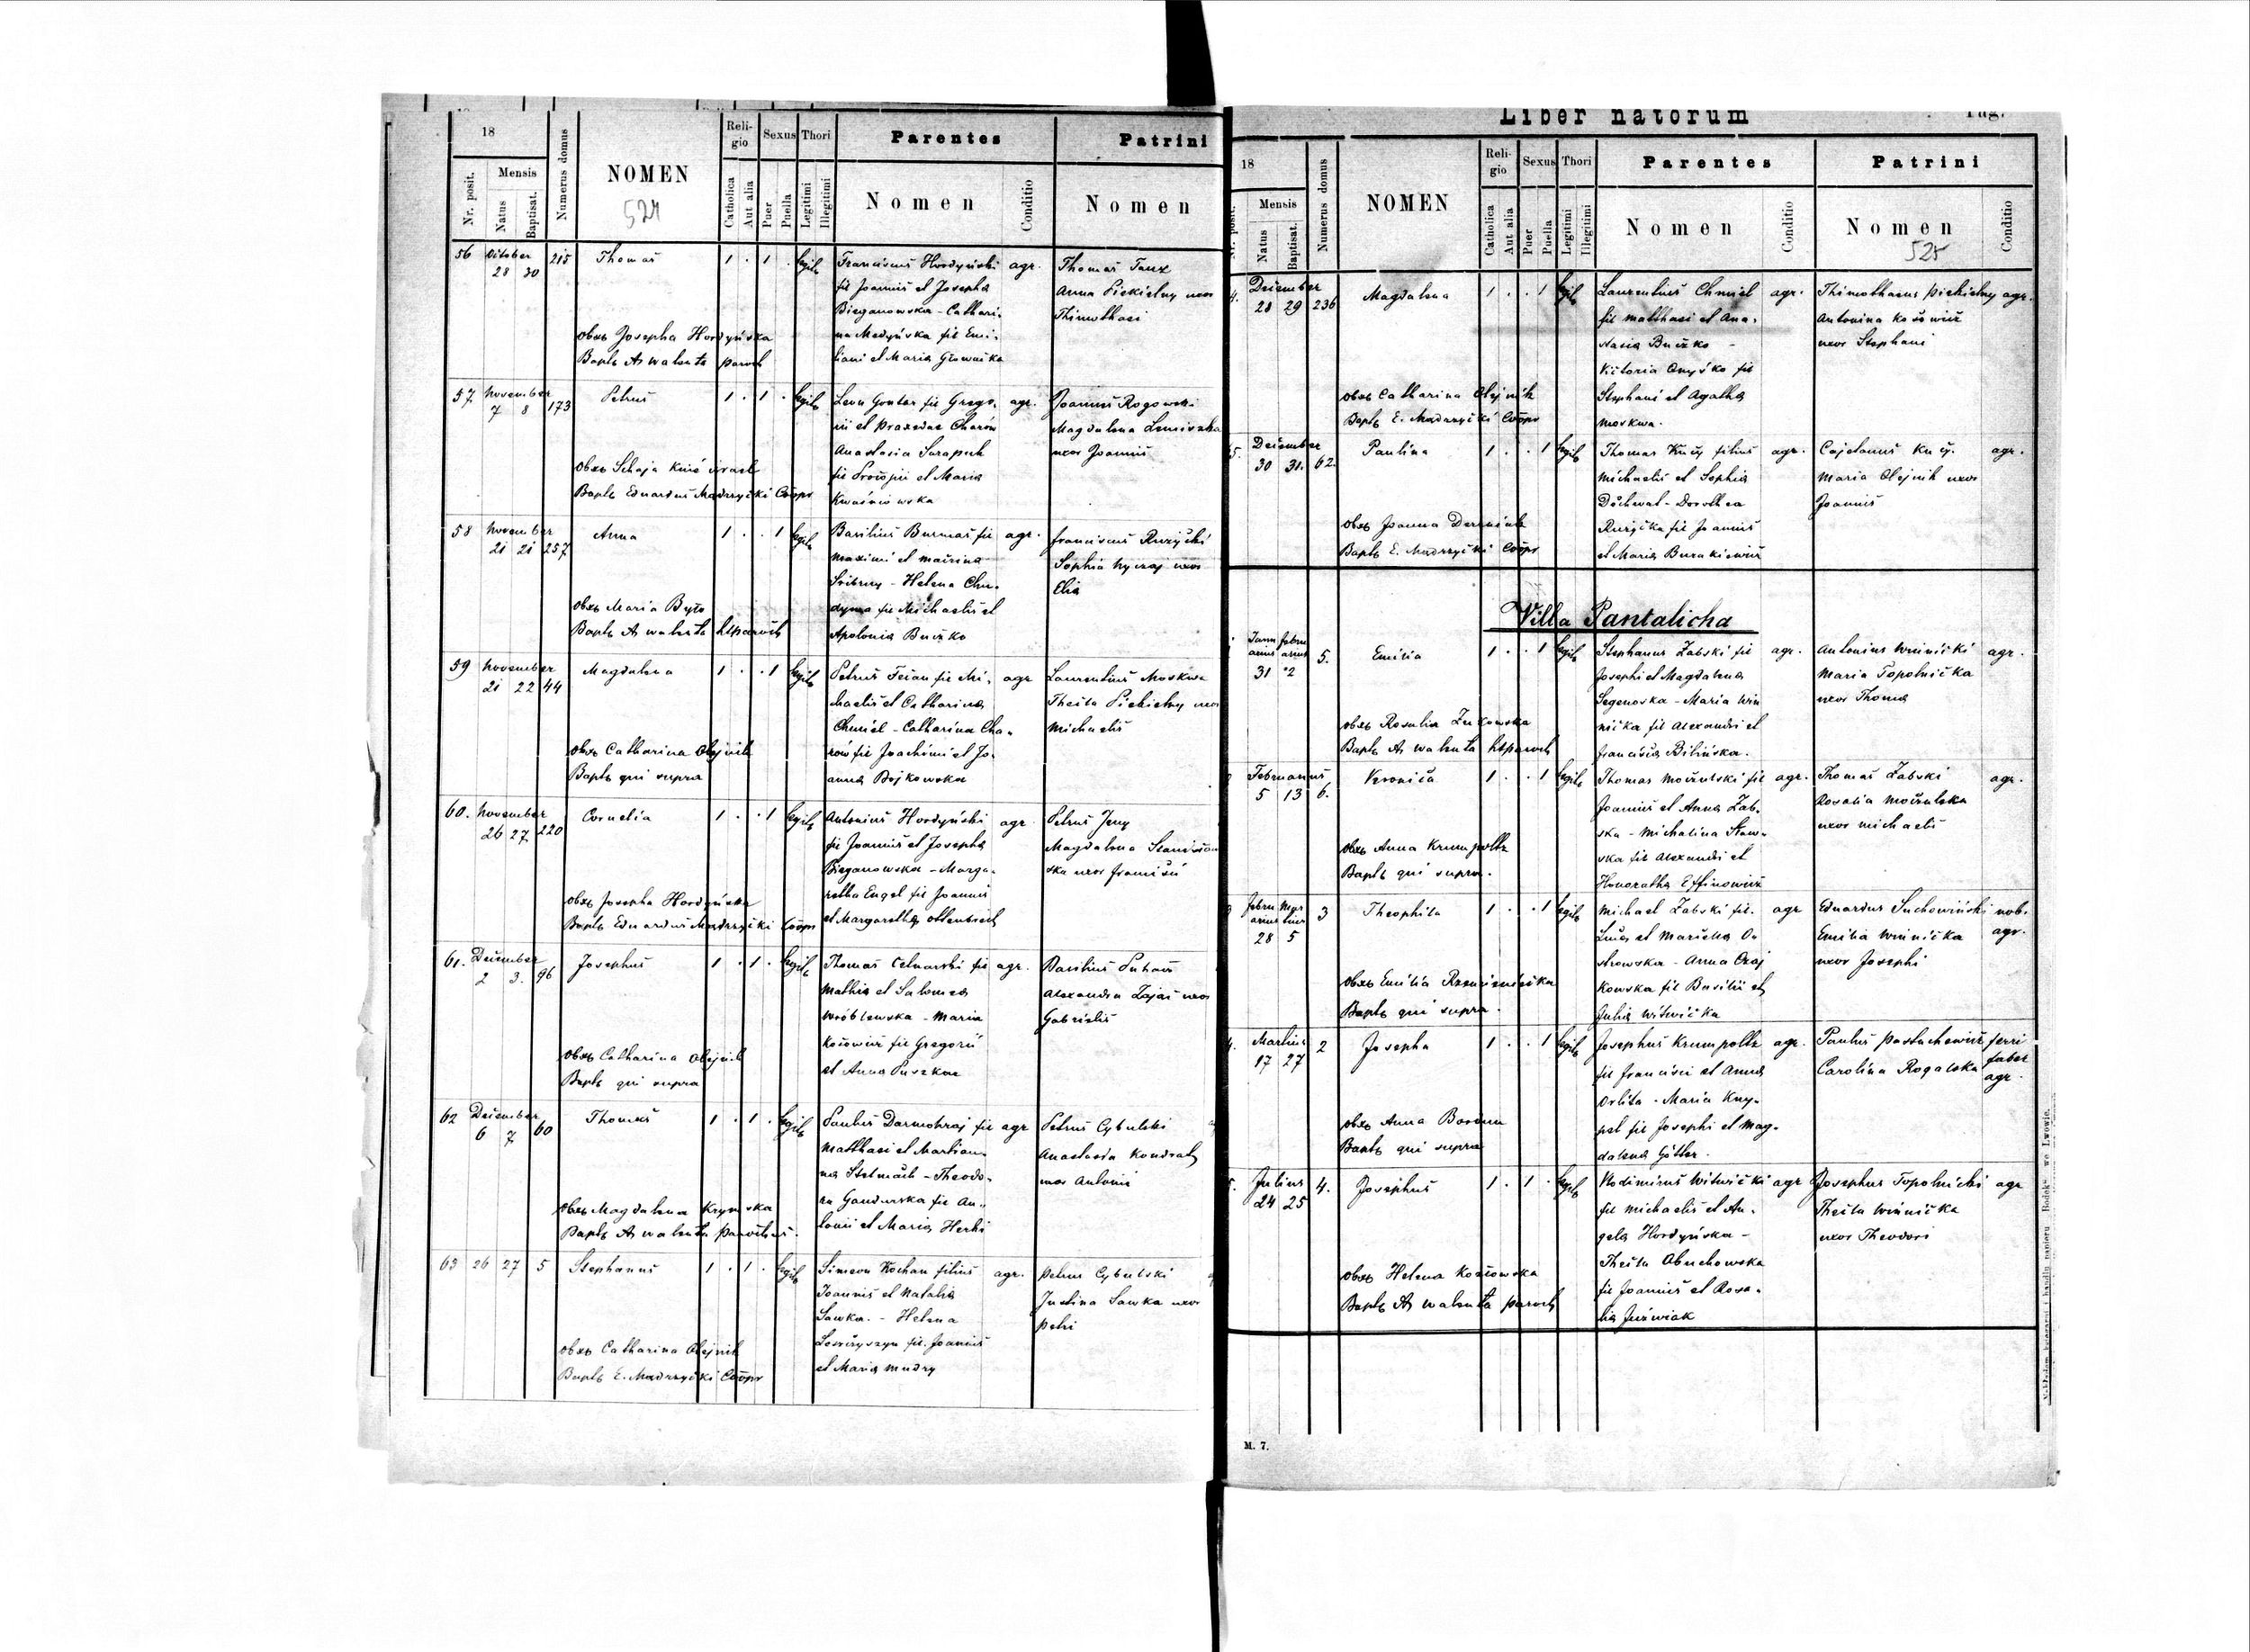 18
Nr. posit.
Mensis
Natus
Baptisat.
Numerus domus
NOMEN
524
Reli-
gio
Catholica
Aut alia
Sexus
Puer
Puella
Thori
Legitimi
Illegitimi
Parentes
Nomen
Conditio
Patrini
Nomen
56 October 28 30 215 Thomas 1 . 1 . legit Franciscus Hordyński agr. Thomas
fil Joannis et Josepha Anna Piekielny uxor
Bieganowska - Cathari- Thimothaei
na Medyńska fil Emi-
liani et Maria Głowacka
obst Josepha Hordyńska
Bapt A Walenta paroch
57 November 7 8 173 Petrus 1 . 1 . legit Leon Gontar fil Grego- agr. Joannes Rogowski
rii et Praxedae Charów Magdalena
Anastasia Sarapuk uxor Joannis
fil Procopii et Maria
Kwaśniowska
obst
Bapt Eduardus Mądrzycki Coopr
58 November 21 21 257 Anna 1 . . 1 legit Basilius Burmas fil agr. Franciscus Ruzycki
Maximi et Sophia Hyczaj uxor
Sribny - Helena Chu- Elia
dyma fil Michaelis et
Apolonia Buczko
obst Maria Byto
Bapt A Walenta Ltsparoch
59 November 21 22 44 Magdalena 1 . . 1 legit Petrus fil Mi- agr Laurentius Moskwa
chaelis et Catharina Thecla Piekielny uxor
Chmiel - Catharina Cha- Michaelis
rów fil Joachimi et Jo-
anna Bojkowska
obst Catharina Olejnik
Bapt qui supra
60. November 26 27 220 Cornelia 1 . . 1 legit Antonius Hordyński agr Petrus Jeny
fil Joannis et Josepha Magdalena
Bieganowska - Marga- ska uxor
retha Engel fil Joannis
et Margaretha
obst Josepha Hordyńska
Bapt Eduardus Mądrzycki Coopr
61. December 2 3. 96 Josephus 1 . 1 . legit Thomas Celnarski fil agr. Basilius
Mathia et Salomea Alexandra Zając uxor
Wróblewska - Maria Gabrielis
Kosowicz fil Gregorii
et Anna Puszkar
obst Catharina Olejnik
Bapt qui supra
62 December 6 7 60 Thomas 1 . 1 . legit Paulus Darmohraj fil agr Petrus Cybulski
Matthaei et Marian- Anastasia Kondrat
na Stelmach - Theodo- uxor Antonii
ra Gandurska fil An-
tonii et Maria Herki
obst Magdalena Krynska
Bapt A Walenta parochus.
63 26 27 5 Stephanus 1 . 1 . legit Simeon Kochan filius agr. Petrus Cybulski
Joannis et Natalia Justina Sawka uxor
Sawka. - Helena Petri
fil. Joannis
et Maria Mudry
obst Catharina Olejnik
Bapt E. Mądrzycki Coopr
Liber natorum
Pag.
18
Nr. posit.
Mensis
Natus
Baptisat.
Numerus domus
NOMEN
Reli-
gio
Catholica
Aut alia
Sexus
Puer
Puella
Thori
Legitimi
Illegitimi
Parentes
Nomen
Conditio
Patrini
Nomen
525
Conditio
4. December 28 29 236 Magdalena 1 . . 1 legit Laurentius Chmiel agr. Thimothaeus Piekielny agr.
fil Matthaei et Ana- Antonina Kosowicz
stasia Buczko - uxor Stephani
Victoria Onyśko fil
Stephani et Agatha
Moskwa.
obst Catharina Olejnik
Bapt E. Mądrzycki Coopr
5. December 30 31. 62. Paulina 1 . . 1 legit Thomas Kucy filius agr. Cajetanus Kucy. agr.
Michaelis et Sophia Maria Olejnik uxor
Dorothea Joannis
Ruzycka fil Joannis
et Maria Burakiewicz
obst Joanna
Bapt E. Mądrzycki Coopr
Villa Pantalicha
Januarius 31 Februarius 2 5. Emilia 1 . . 1 legit Stephanus Zabski fil agr. Antonius Winnicki agr.
Josephi et Magdalena Maria Topolnicka
Segenoska - Maria Win- uxor Thoma
nicka fil Alexandri et
Francisca Bilińska.
obst Rosalia Zukowska
Bapt A Walenta Ltsparoch
Februarius 5 13 6. Veronica 1 . . 1 legit Thomas Moczulski fil agr. Thomas Zabski agr.
Joannis et Anna Zab- Rosalia Moczulska
ska - Michalina Staw- uxor Michaelis
ska fil Alexandri et
Honoratha Effinowicz
obst Anna Krumpoltz
Bapt qui supra.
3 Februarius 28 Martius 5 3 Theophila 1 . . 1 legit Michael Zabski fil. agr Eduardus Suchowiński nob.
Luca et Maricha O- Emilia Winnicka agr.
strowska - Anna Czaj uxor Josephi
kowska fil Basilii et
Julia Witwicka
obst Emilia
Bapt qui supra.
4. Martius 17 27 2 Josepha 1 . . 1 legit Josephus Krumpoltz agr. Paulus Pastuchewicz ferri
fil Francisci et Anna Carolina Rogalska faber
Orlita - Maria Kny- agr.
pel fil Josephi et Mag-
dalena Götter.
obst Anna
Bapt qui supra
5. Julius 24 25 4. Josephus 1 . 1 . legit Wodimirus Witwicki agr Josephus Topolnicki agr
fil Michaelis et An- Thecla Winnicka
gela Hordyńska - uxor Theodori
Thecla Obuchowska
fil Joannis et Rosa-
lia Juźwiak
obst Helena
Bapt A Walenta paroch
M. 7.